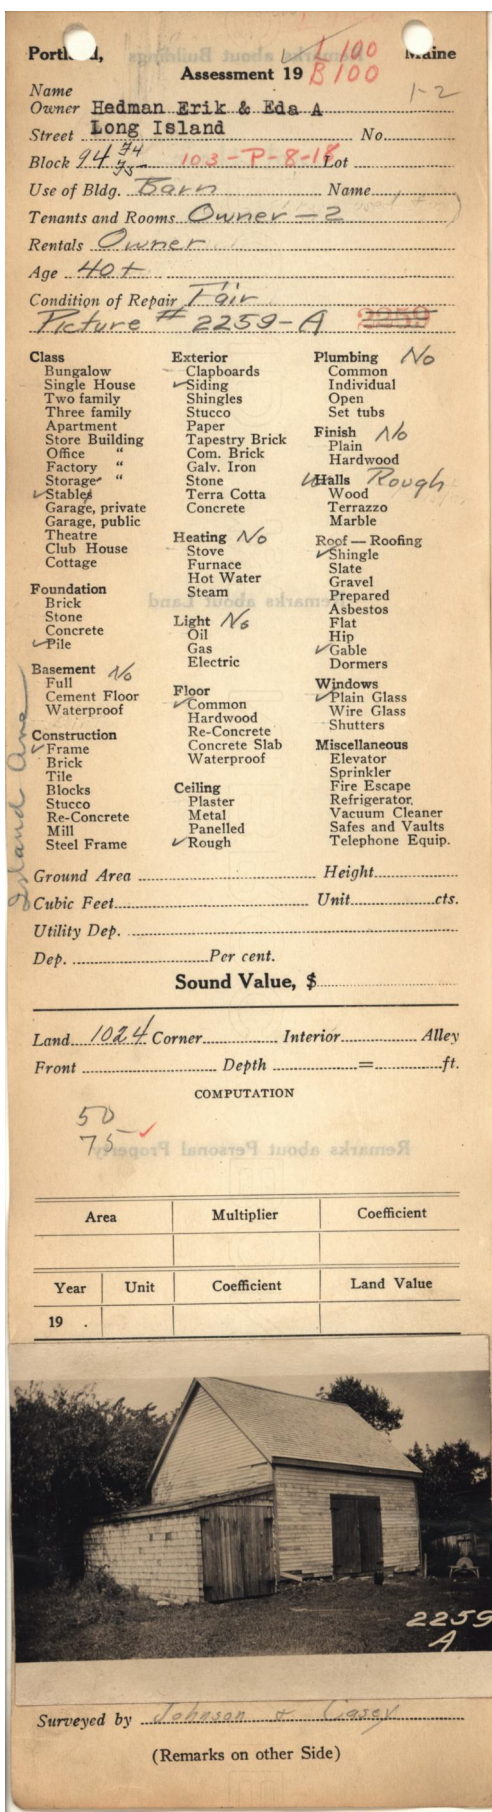 Portland, Maine
L 100
Assessment 19 B 100
1-2
Name
Owner Hedman Erik & Eda A
Street Long Island No.
Block 94 74 75 103-P-8-18 Lot
Use of Bldg. Barn Name
Tenants and Rooms Owner - 2
Rentals Owner
Age 40+
Condition of Repair Fair
Picture # 2259-A 2259
Class
Bungalow
Single House
Two family
Three family
Apartment
Store Building
Office "
Factory "
Storage "
✓Stables
Garage, private
Garage, public
Theatre
Club House
Cottage
Foundation
Brick
Stone
Concrete
✓Pile
Basement No
Full
Cement Floor
Waterproof
Construction
✓Frame
Brick
Tile
Blocks
Stucco
Re-Concrete
Mill
Steel Frame
Exterior
Clapboards
✓Siding
Shingles
Stucco
Paper
Tapestry Brick
Com. Brick
Galv. Iron
Stone
Terra Cotta
Concrete
Heating No
Stove
Furnace
Hot Water
Steam
Light No
Oil
Gas
Electric
Floor
✓Common
Hardwood
Re-Concrete
Concrete Slab
Waterproof
Ceiling
Plaster
Metal
Panelled
✓Rough
Plumbing No
Common
Individual
Open
Set tubs
Finish No
Plain
Hardwood
✓Halls Rough
Wood
Terrazzo
Marble
Roof — Roofing
✓Shingle
Slate
Gravel
Prepared
Asbestos
Flat
Hip
✓Gable
Dormers
Windows
✓Plain Glass
Wire Glass
Shutters
Miscellaneous
Elevator
Sprinkler
Fire Escape
Refrigerator,
Vacuum Cleaner
Safes and Vaults
Telephone Equip.
Island Ave
Ground Area Height
Cubic Feet Unit cts.
Utility Dep.
Dep. Per cent.
Sound Value, $
Land 1024 Corner Interior Alley
Front Depth = ft.
COMPUTATION
50
75 ✓
Area Multiplier Coefficient
Year Unit Coefficient Land Value
19 .
2259
A
Surveyed by Johnson & Casey
(Remarks on other Side)